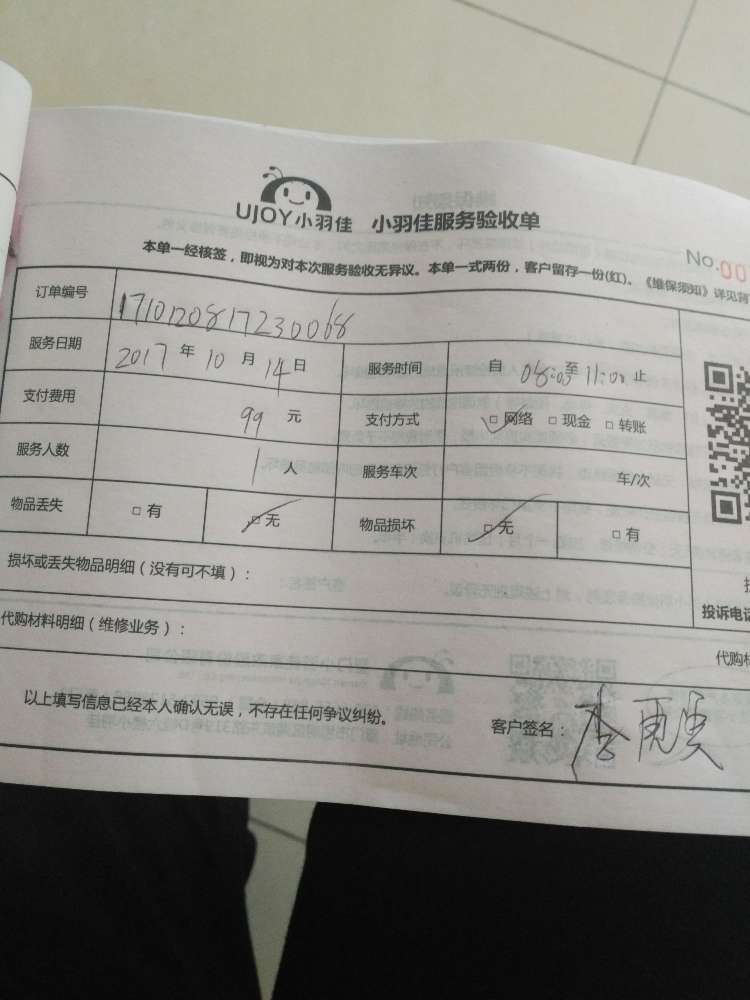 UJOY小羽佳 小羽佳服务验收单
No.00
本单一经核签，即视为对本次服务验收无异议。本单一式两份，客户留存一份(红)。《维保须知》详见背
订单编号 1710120817230068
服务日期 2017 年 10 月 14 日 服务时间 自 08:05 至 11:00 止
支付费用 99 元 支付方式 □网络 □现金 □转账
服务人数 1 人 服务车次 车/次
物品丢失 □有 □无 物品损坏 □无 □有
损坏或丢失物品明细（没有可不填）：
投诉电话
代购材料明细（维修业务）：
代购材
以上填写信息已经本人确认无误，不存在任何争议纠纷。 客户签名：